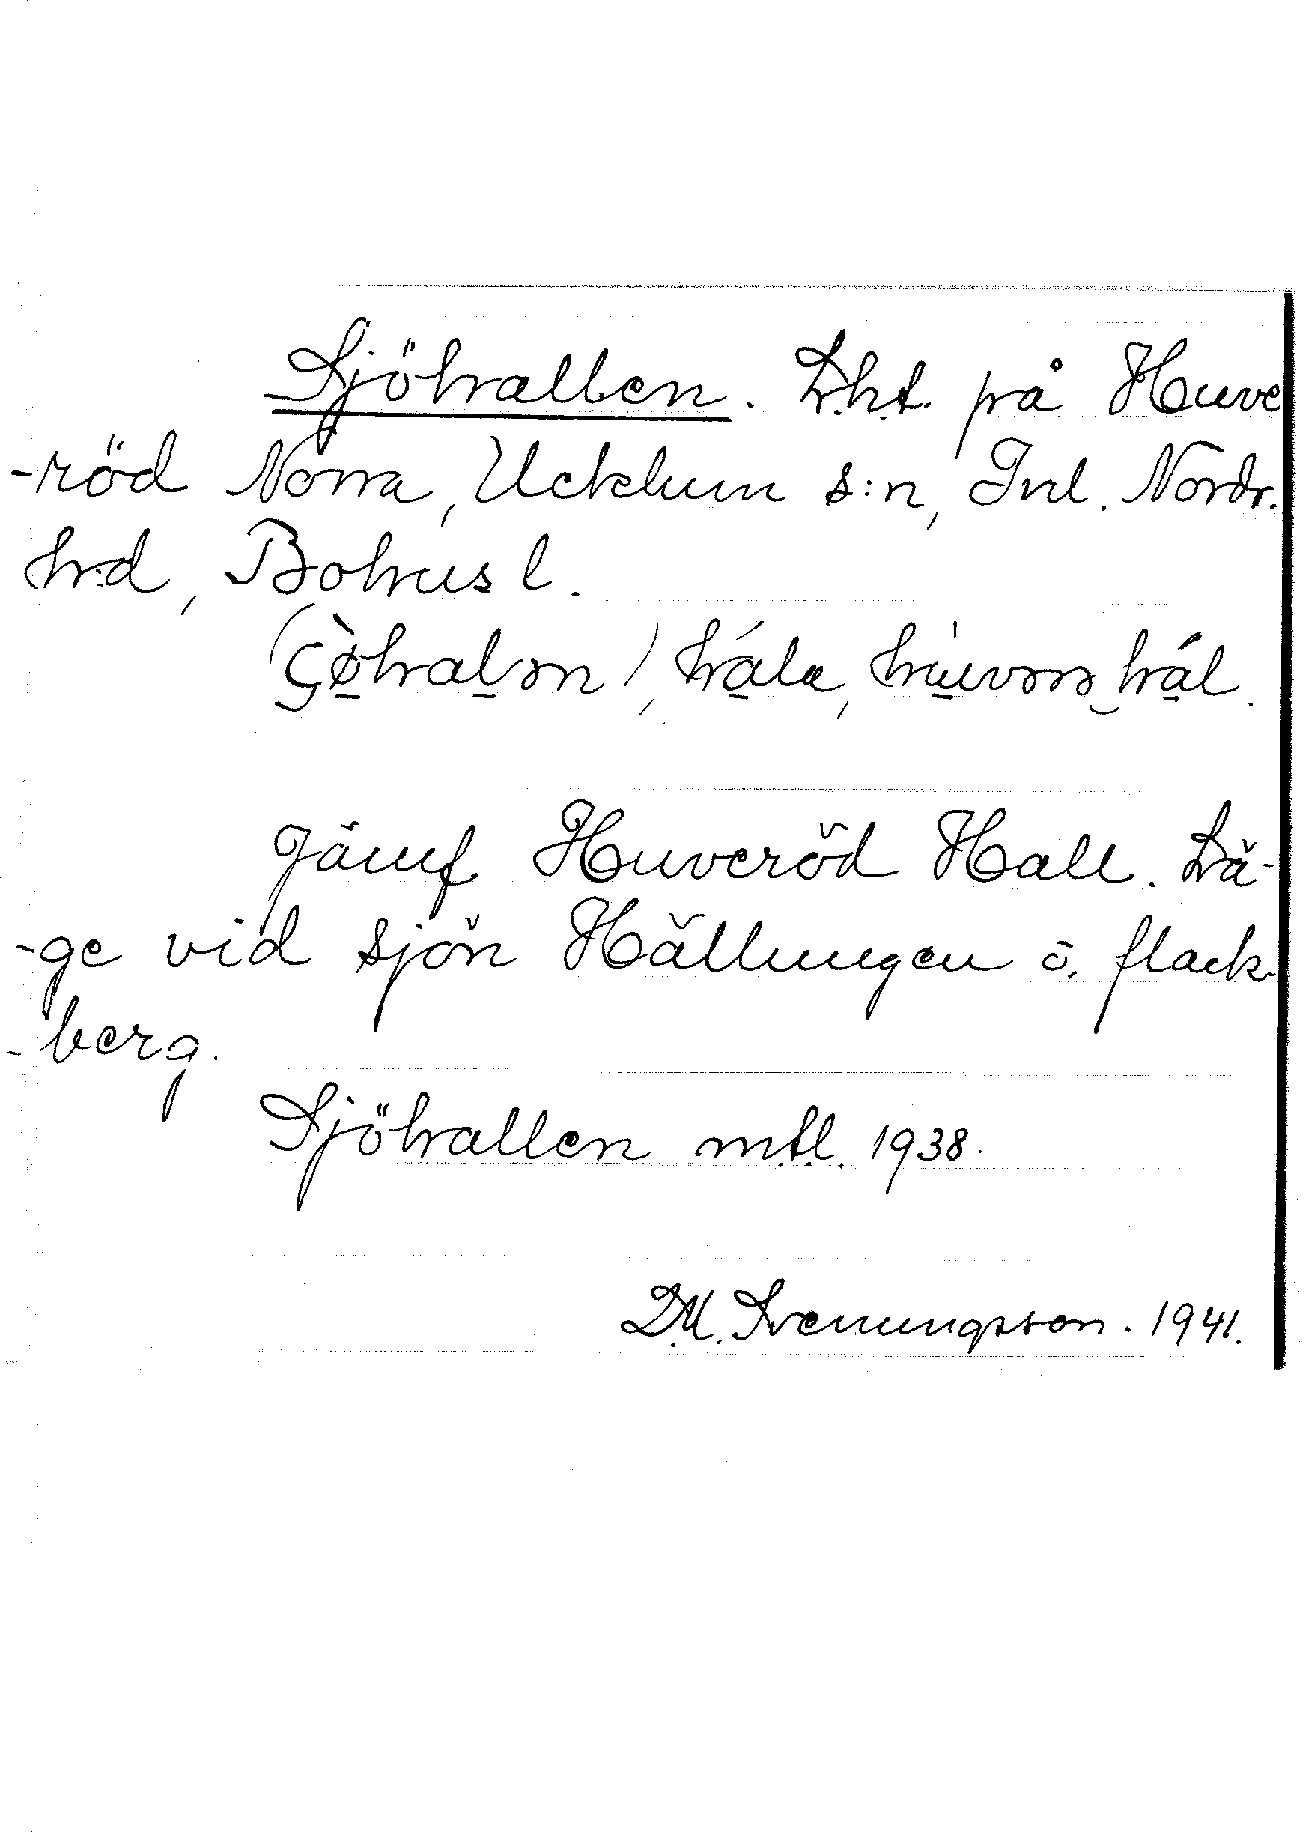 Sjöhallen. Lht. på Huve
-röd Norra, Ucklum s:n, Inl. Nordr.
hd, Bohusl.
hála,
Jämf. Huveröd Hall. Lä-
-ge vid sjön Hällungen å flack-
-berg.
Sjöhallen mtl. 1938.
D.M. Svenungsson. 1941.